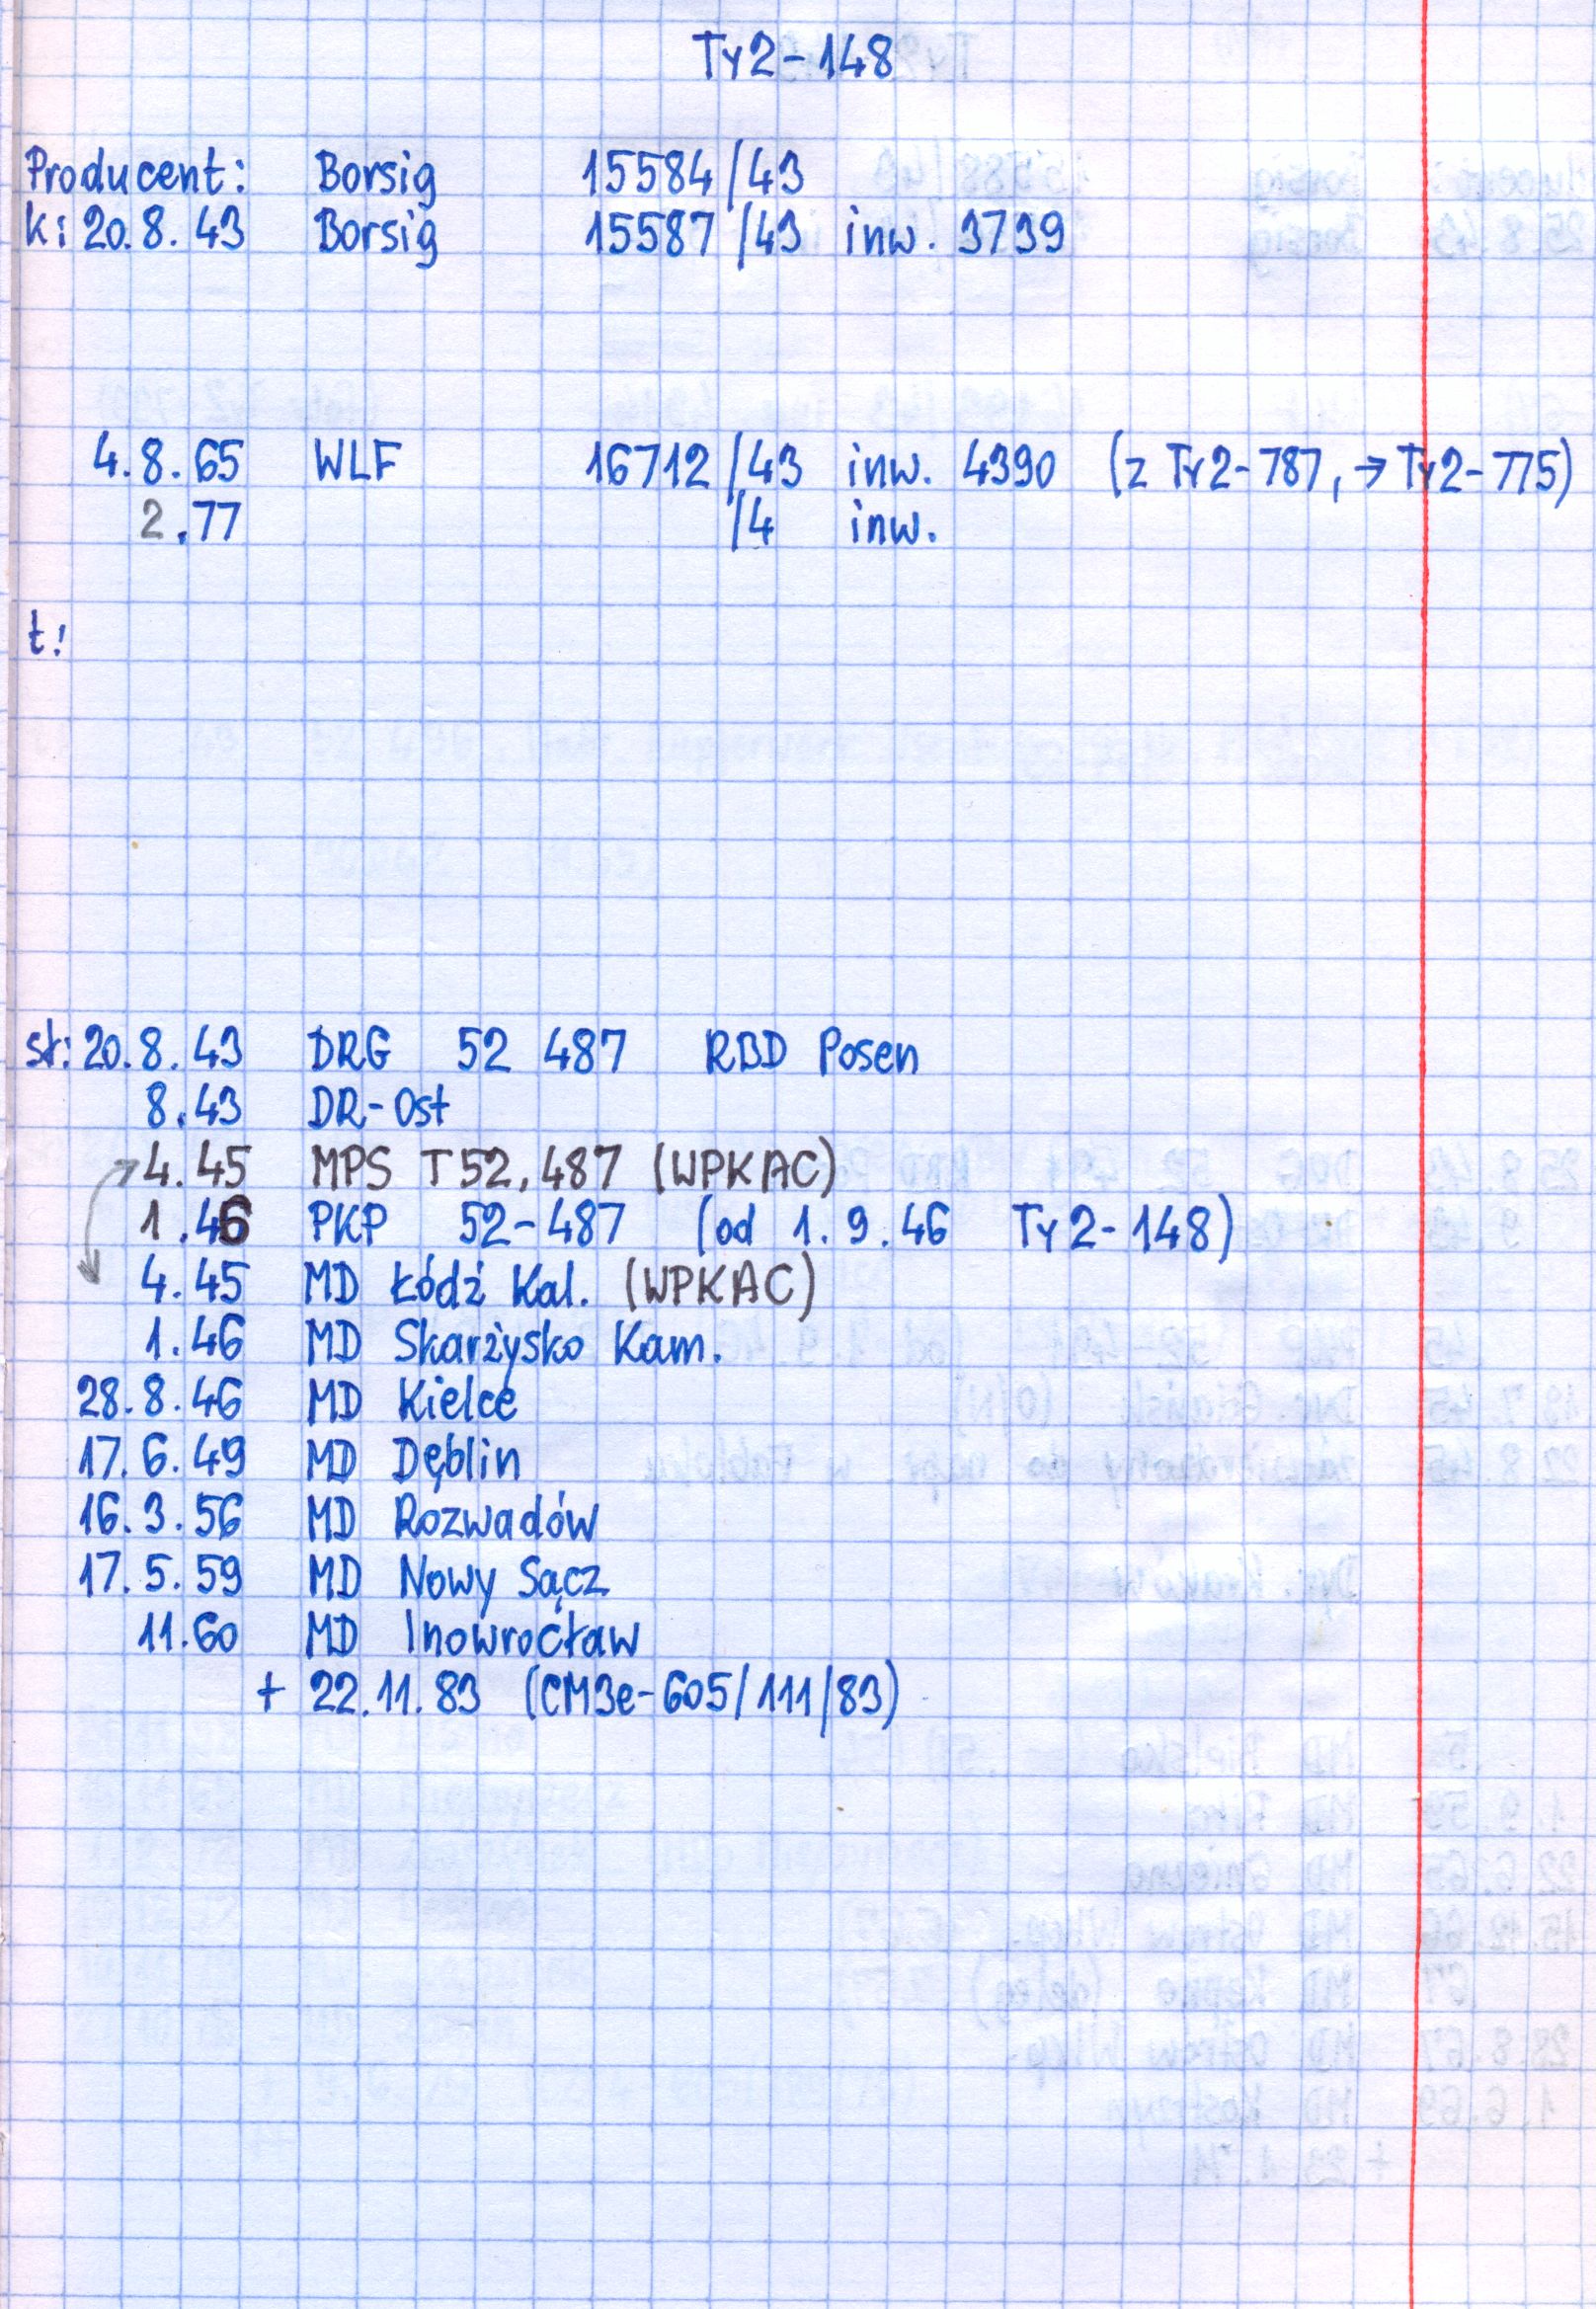 Ty2-148
Producent: Borsig 15584/43
k: 20.8.43 Borsig 15587/43 inw. 3739
4.8.65 WLF 16712/43 inw. 4390 (z Ty2-787, → Ty2-775)
2.77 /4 inw.
t:
st: 20.8.43 DRG 52 487 RBD Posen
8.43 DR-Ost
4.45 MPS T52.487 (WPKAC)
1.46 PKP 52-487 (od 1.9.46 Ty2-148)
4.45 MD Łódź Kal. (WPKAC)
1.46 MD Skarżysko Kam.
28.8.46 MD Kielce
17.6.49 MD Dęblin
16.3.56 MD Rozwadów
17.5.59 MD Nowy Sącz
11.60 MD Inowrocław
+ 22.11.83 (CM3e-605/111/83)